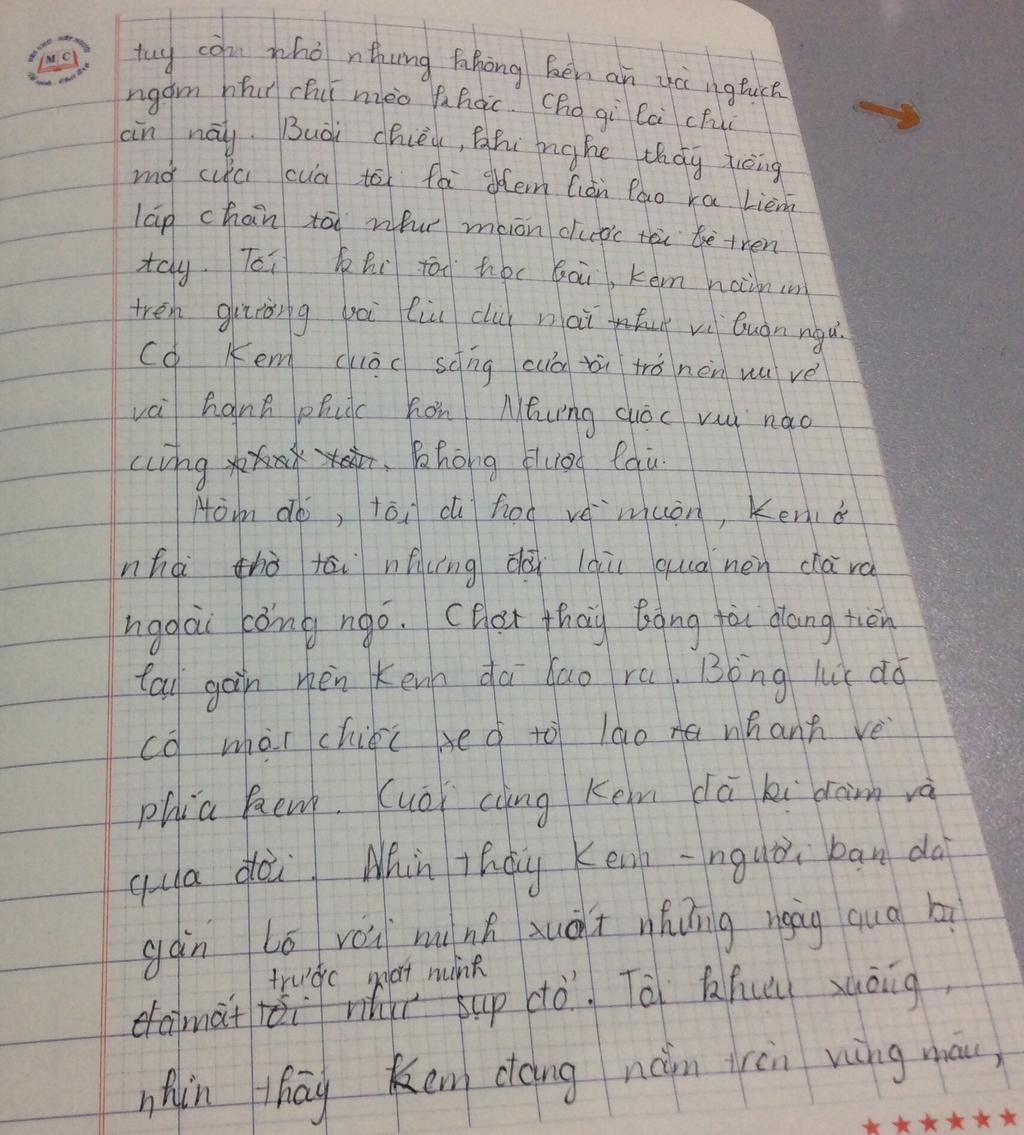 MC
tuy còn nhỏ nhưng không kén ăn và nghịch
ngợm như chú mèo khác. Cho gì là chú
ăn nấy. Buổi chiều, khi nghe thấy tiếng
mở cửa của tôi là Kem liền lao ra liếm
láp chân tôi như muốn được tôi bế trên
tay. Tối khi tôi học bài, Kem nằm im
trên giường và liu diu mắt như vì buồn ngủ.
Có Kem cuộc sống của tôi trở nên vui vẻ
và hạnh phúc hơn Nhưng cuộc vui nào
cũng không được lâu.
Hôm đó, tôi đi học về muộn, Kem ở
nhà chờ tôi nhưng đợi lâu quá nên đã ra
ngoài cổng ngó. Chợt thấy bóng tôi đang tiến
lại gần nên Kem đã lao ra. Bỗng lúc đó
có một chiếc xe ô tô lao ra nhanh về
phía kem. Cuối cùng Kem đã bị đâm và
qua đời. Nhìn thấy Kem - người bạn đã
gắn bó với mình suốt những ngày qua bị
trước mắt mình
đã mất tôi như sụp đổ. Tôi khuỵu xuống,
nhìn thấy Kem đang nằm trên vũng máu,